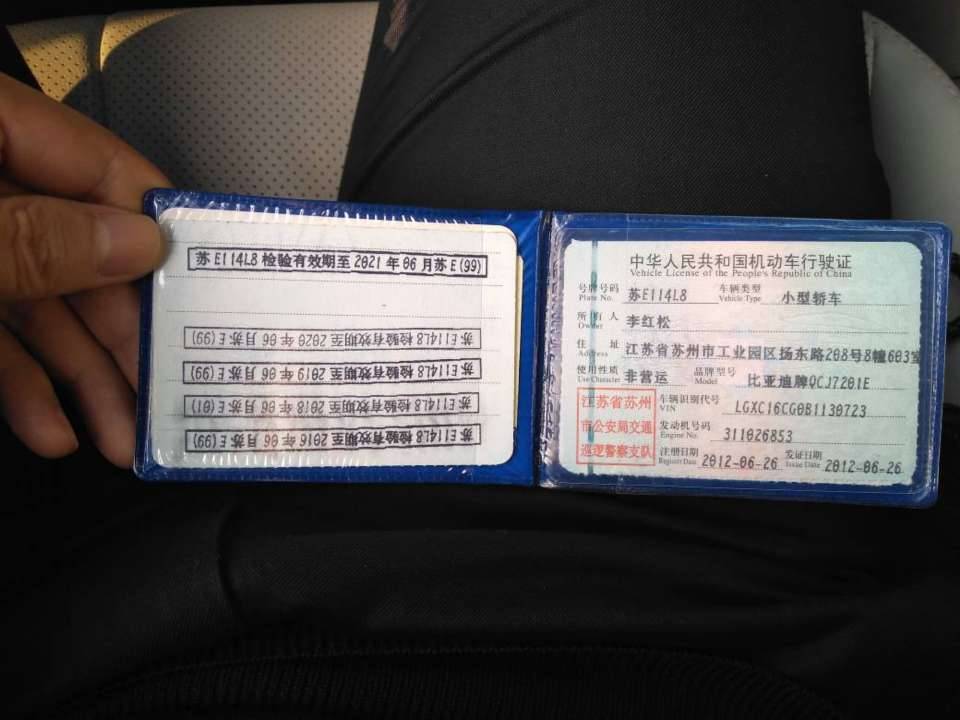 苏E114L8检验有效期至2021年06月苏E(99)
苏E114L8检验有效期至2020年06月苏E(99)
苏E114L8检验有效期至2019年06月苏E(99)
苏E114L8检验有效期至2018年06月苏E(01)
苏E114L8检验有效期至2016年06月苏E(99)
中华人民共和国机动车行驶证
Vehicle License of the People's Republic of China
号牌号码 苏E114L8 车辆类型 小型轿车
Plate No. Vehicle Type
所有人 李红松
Owner
住址 江苏省苏州市工业园区扬东路208号8幢603室
Address
使用性质 非营运 品牌型号 比亚迪牌QCJ7201E
Use Character Model
江苏省苏州
市公安局交通
巡逻警察支队
车辆识别代号 LGXC16CG0B1130723
VIN
发动机号码 311026853
Engine No.
注册日期 2012-06-26 发证日期 2012-06-26
Register Date Issue Date